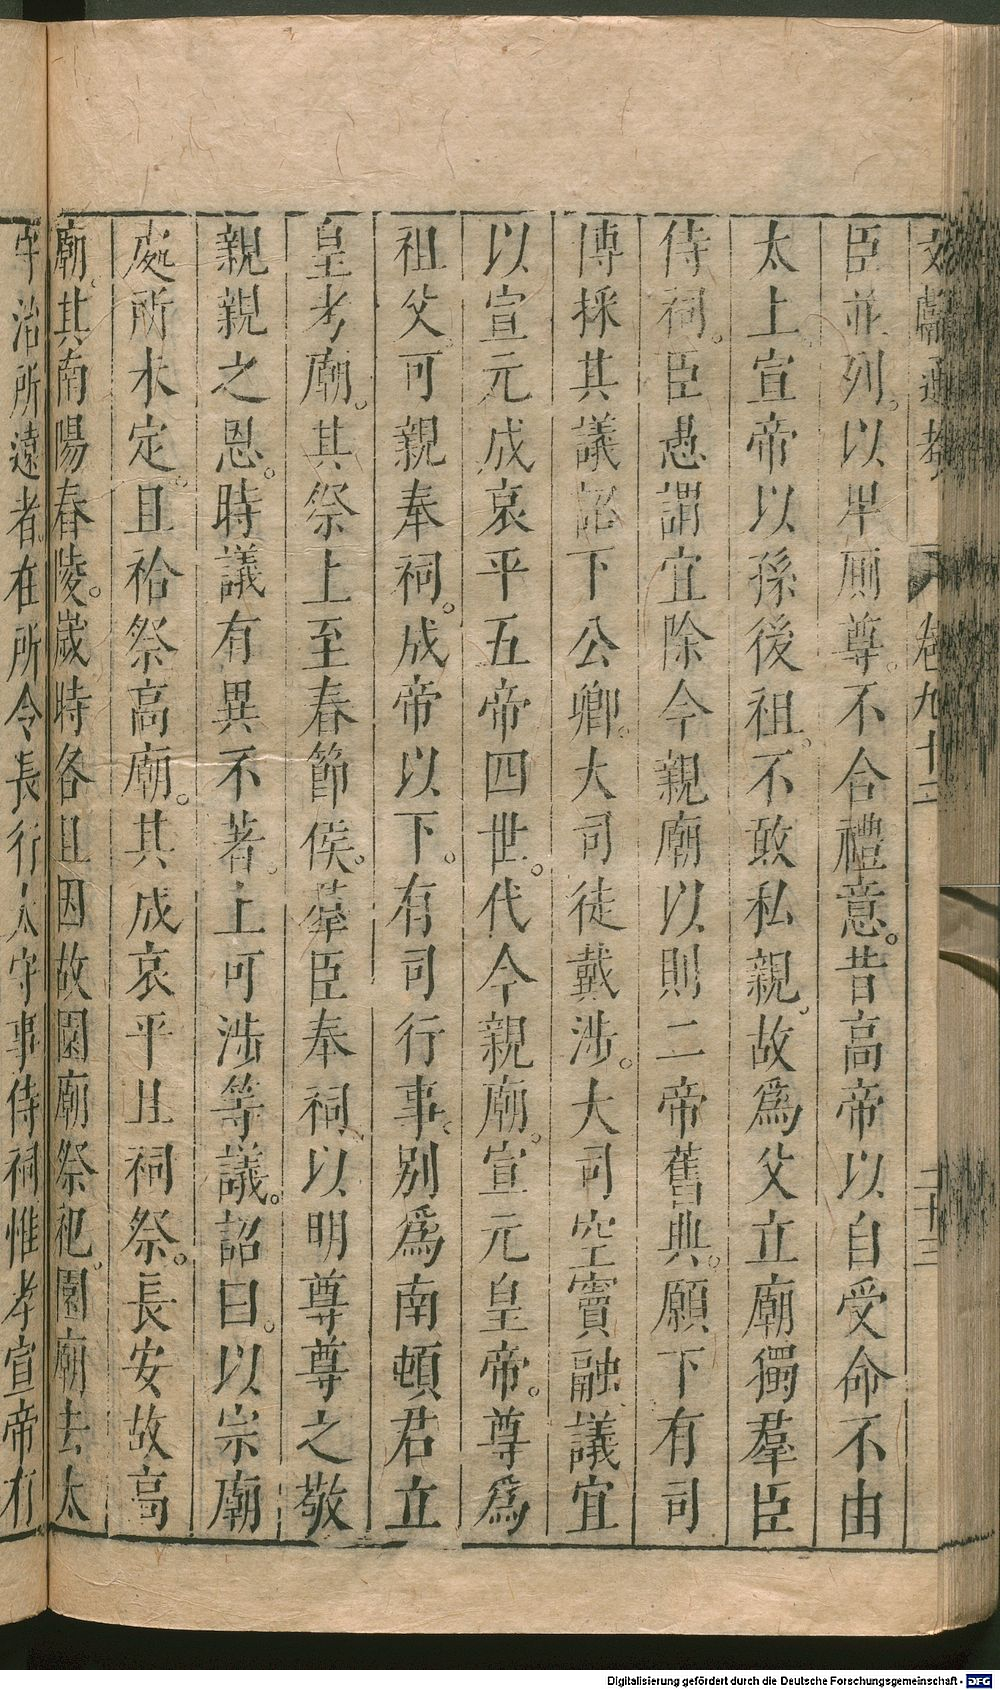 文獻通考 卷九十二 二十三
臣並列。以卑廁尊。不合禮意。昔高帝以自受命不由
太上。宣帝以孫後祖。不敢私親。故爲父立廟獨羣臣
侍祠。臣愚謂宜除今親廟以則二帝舊典。願下有司
博採其議詔下公卿。大司徒戴涉。大司空竇融議宜
以宣元成哀平五帝四世。代今親廟。宣元皇帝。尊爲
祖父。可親奉祠。成帝以下。有司行事。別爲南頓君立
皇考廟。其祭上至舂節侯。羣臣奉祠。以明尊尊之敬
親親之恩。時議有異不著。上可涉等議。詔曰。以宗廟
處所未定。且祫祭高廟。其成哀平且祠祭。長安故高
廟。其南陽舂陵。歲時各且因故園廟祭祀。園廟去太
守治所遠者。在所令長行太守事侍祠惟孝宣帝有
Digitalisierung gefördert durch die Deutsche Forschungsgemeinschaft - DFG